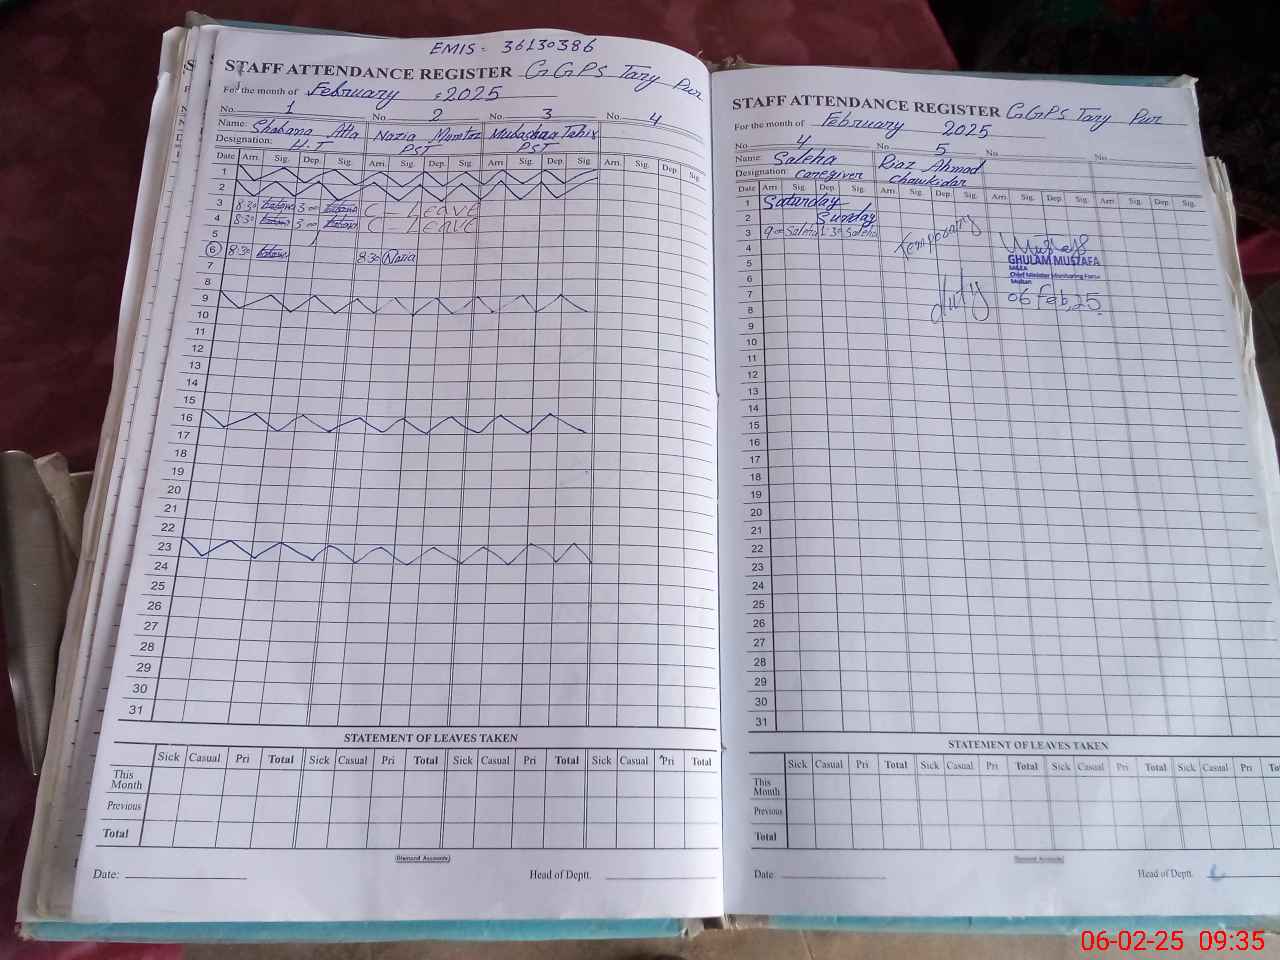 EMIS: 36130386
STAFF ATTENDANCE REGISTER GGPS Tary Pur
For the month of February 2025
No. 1 No 2 No. 3 No. 4
Name: Shabana Atta Nazia Mumtaz Mubashra Tahir
Designation: H.T PST PST
Date Arr. Sig. Dep. Sig. Arr. Sig. Dep. Sig. Arr. Sig. Dep. Sig. Arr. Sig. Dep Sig.
1
2
3 8:30 3:00 C-Leave
4 8:30 3:00 C-Leave
5
6 8:30 8:30 Nazia
7
8
9
10
11
12
13
14
15
16
17
18
19
20
21
22
23
24
25
26
27
28
29
30
31
STATEMENT OF LEAVES TAKEN
Sick Casual Pri Total Sick Casual Pri Total Sick Casual Pri Total Sick Casual Pri Total
This Month
Previous
Total
Diamond Accounts
Date: Head of Deptt.
STAFF ATTENDANCE REGISTER GGPS Tary Pur
For the month of February 2025
No 4 No. 5 No. No.
Name: Saleha Riaz Ahmad
Designation: Caregiver Chawkidar
Date Arr. Sig. Dep. Sig. Arr. Sig. Dep. Sig. Arr. Sig. Dep. Sig. Arr. Sig. Dep. Sig.
1 Saturday
2 Sunday
3 9:00 Saleha 1:30 Saleha
Temporary
duty
GHULAM MUSTAFA
MEA
Chief Minister Monitoring Force
Multan
06 Feb, 25
4
5
6
7
8
9
10
11
12
13
14
15
16
17
18
19
20
21
22
23
24
25
26
27
28
29
30
31
STATEMENT OF LEAVES TAKEN
Sick Casual Pri Total Sick Casual Pri Total Sick Casual Pri Total Sick Casual Pri
This Month
Previous
Total
Diamond Accounts
Date Head of Deptt.
06-02-25 09:35